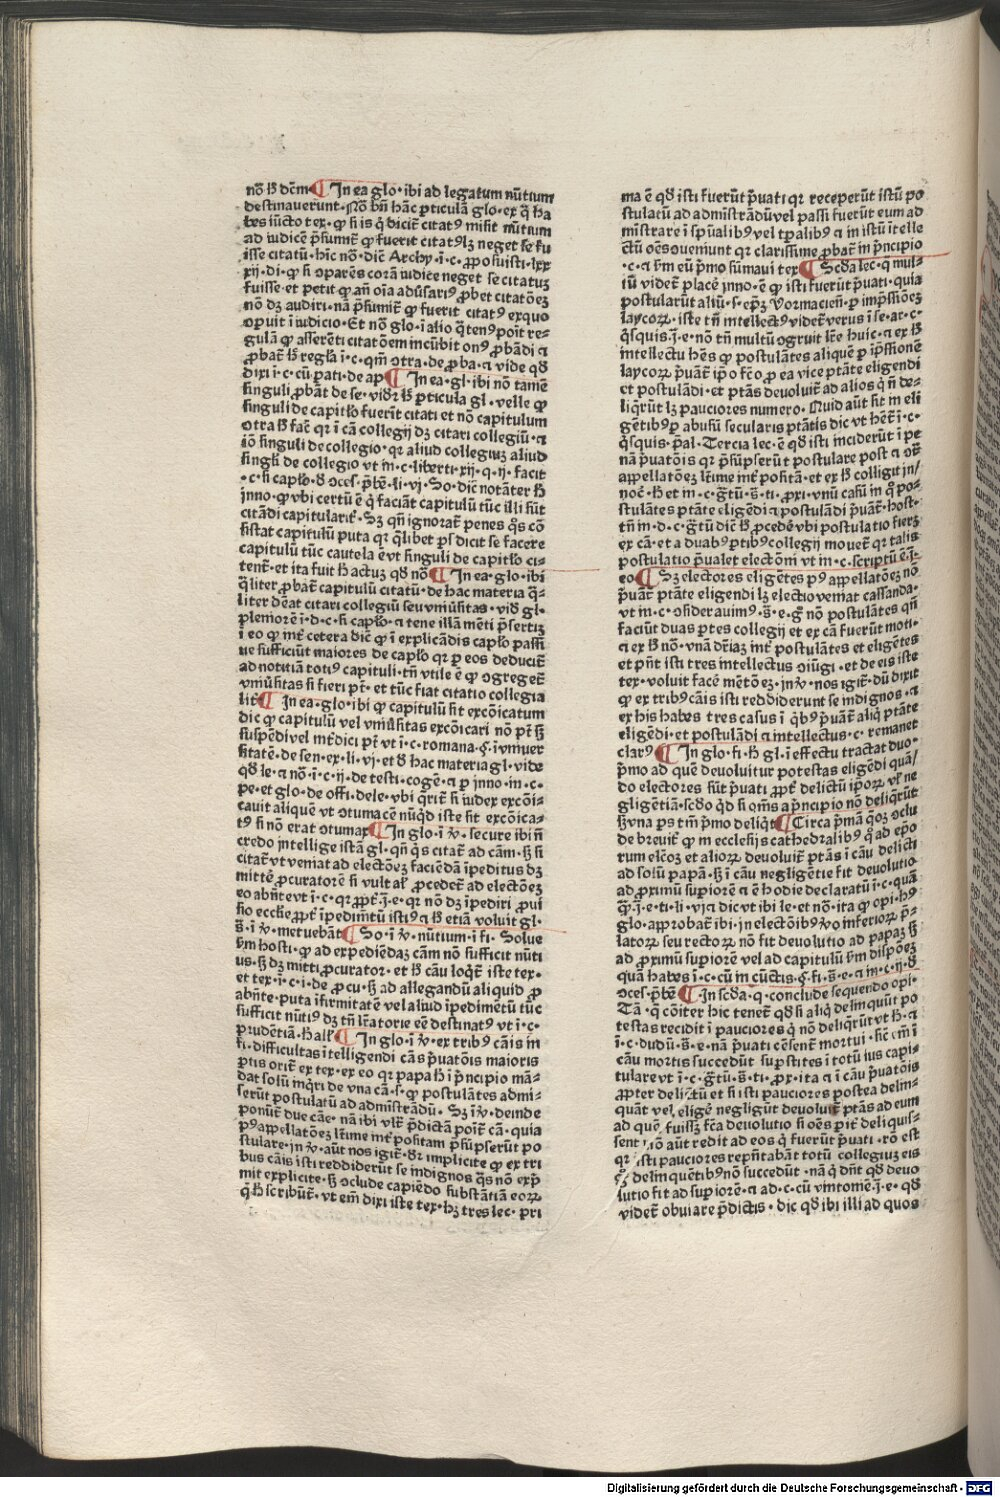 nō ħ dc̄m ¶ In ea glo· ibi ad legatum nūtium
destinauerunt· Nō bn̄ hāc ꝑticulā glo· ex q̄ ha
bes iūcto tex· ꝙ si is q̄ dicit̄ citatꝰ misit nūtium
ad iudicē p̄sumit̄ ꝙ fuerit citatꝰ lꝫ neget se fu
isse citatū· hic nō· dic̄ Archy· ī·c· ꝓposuisti· lxx
xij· di· ꝙ si oparēs corā iudice neget se citatuꝫ
fuisse· et petit ꝙ an̄ oīa aduersariꝰ ꝓbet citatōeꝫ
nō dꝫ audiri· nā p̄sumit̄ ꝙ fuerit citatꝰ exquo
oꝑuit ī iudicio· Et nō glo· ī alio
gulā ꝙ asserēti citatōem incūbit onꝰ ꝓbādi
ꝓbat̄ ħ regla ī·c· qm̄ otra· de ꝓba· ⁊ vide qđ
dixi ī·c· cū ꝑati· de ap ¶ In ea·gl· ibi nō tamē
singuli ꝓbāt de se· ꝑticula gl· velle ꝙ
singuli de capitło fuerūt citati et nō capitulum
otra ħ fac̄ qr ī cā collegij dꝫ citari collegiū· ⁊
iō singuli de collegio· qr aliud collegiuꝫ aliud
singli de collegio vt in·c· liberti· xij· q· ij· facit
·c· si capło· đ oces· p̄bē· li· vj· So· dic notāter ħ
jnno· ꝙ vbi certū ē q̄ faciāt capitulū tūc illi sūt
citādi capitularit̄· Sꝫ qn̄ ignorat̄ penes q̄s cō
sistat capitulū puta qr q̄libet pꝉs dicit se facere
capitulū tūc cautela ē vt singuli de capitło ci-
tent̄· et ita fuit ħ actuꝫ qđ nō ¶ In ea·glo· ibi
q̄liter ꝓbat̄ capitulū citatū· de hac materia q̄-
liter dēat citari collegiū seu vniūsitas· vid̄ gl·
plemorē ī·d·c· si capło· ⁊ tene illā mēti p̄sertiꝫ
ī eo ꝙ cetera dic̄ ꝙ ī explicādis capło passī
ue sufficiūt maiores de capło qr ꝑ eos deducit̄
ad notitiā totiꝰ capituli· tn̄ vtile ē ꝙ ogreget̄
vniūsitas si fieri pt̄· et tūc fiat citatio collegia
lit̄ ¶ In ea·glo· ibi ꝙ capitulū sit excōicatum
dic ꝙ capitulū vel vniūsitas excōicari nō pt̄ ꝫ
suspēdi vel īt̄dici pt̄ vt ī·c· romana·§· ī vniuer
sitatē· de sen· ex· li· vj· et đ hac materia gl· vide
qđ le· ⁊ nō· ī·c· ij· de testi· cogē· ⁊ ꝑ jnno· in·c·
pe· et glo· de offi· dele· vbi q̄rit̄ si iudex excōi-
cauit aliquē vt otumacē nūqd iste sit excōica-
tꝰ si nō erat otumax ¶ In glo· ī ꝟ· secure ibi n̄
credo jntellige istā gl· qn̄ q̄s citat̄ ad cām· ꝫ si
citat̄ vt veniat ad electōeꝫ faciēdā īpeditus dꝫ
mittē ꝓcuratorē si vult al̄ ꝓcedet̄ ad electōeꝫ
eo abn̄te vt ī·c· qr ꝓpt̄·J·e· qr nō dꝫ īpediri ꝓui
sio ecclīe ꝓpt̄ īpedimtū istiꝰ ⁊ ħ etiā voluit gl·
s̄· ī ꝟ· metuebāt ¶ So· ī ꝟ· nūtium· ī fi· Solue
ẜm hosti· ꝙ ad expediēdaꝫ cām nō sufficit nūti
us· ꝫ dꝫ mitti ꝓcurator· et ħ cāu loqt̄ iste tex·
et tex· ī·c· j· de ꝓcu· ꝫ ad allegandū aliquid ꝓ
abn̄te· puta īfirmitatē vel aliud īpedimētū tūc
sufficit nūtiꝰ dꝫ tn̄ lr̄atorie eē destinatꝰ vt ī·c·
prudentiā· ħ all ¶ In glo· ī ꝟ· ex tribꝰ cāis in
fi· difficultas ītelligendi cās p̄uatōis maioris
ꝑtis orit̄ ex tex· ex eo qr papa ħ ī p̄ncipio mā-
dat solū inq̄ri de vna cā· s· ꝙ postulātes admi-
serūt postulatū ad admīstrādū· Sꝫ ī ꝟ· deinde
ponūt̄ due cāe· nā ibi vlt̄ p̄dictā poit̄ cā· quia
pꝰ appellatōeꝫ lt̄ime īt̄ positam p̄sūpserūt po
stulare· jn ꝟ· aūt nos igit̄· đr implicite ꝙ ex tri
bus cāis isti reddiderūt se indignos q̄s nō exp̄
mit explicite· ꝫ oclude capiēdo substātiā eoꝝ
q̄ ħ scribūt̄· vt em̄ dixi iste tex· hꝫ tres lec· pri
ma ē qđ isti fuerūt p̄uati qr receperūt istū po
stulatū ad admīstrādū vel passi fuerūt eum ad
ministrare ī spūalibꝰ vel tꝑalibꝰ ⁊ in istū ītelle
ctū oēs oueniunt qr clarissime ꝓbat̄ in p̄ncipio
·c· ⁊ ẜm eū p̄mo sūmaui tex ¶ Scđa lec· q̄ mul-
iū videt̄ placē jnno· ē ꝙ isti fuerūt p̄uati· quia
postularūt aliū· s· ep̄ꝫ Vormacien̄· ꝑ imp̄ssiōeꝫ
laycoꝝ· iste tn̄ intellectꝰ videt̄ verus ī se· ar·c·
q̄squis·J·e· nō tn̄ multū ogruit lr̄e huic· ⁊ ex ħ
intellectu hēs ꝙ postulātes aliquē ꝑ īp̄ssionē
laycoꝝ p̄uāt̄ ip̄o fc̄o ꝑ ea vice ptāte eligendi
et postulādi· et ptās deuoluit̄ ad alios q̄ n̄ de-
liq̄rūt lꝫ pauciores numero· Quid aūt sit in eli
gētibꝰ ꝑ abusū secularis ptātis dic vt hēt̄ ī·c·
q̄squis· p̄al· Tercia lec· ē qđ isti inciderūt ī pe
nā p̄uatōis qr p̄sūpserūt postulare post
appellatōeꝫ lt̄ime īt̄ positā· et ex ħ colligit jn/
noc̄· ħ et in·c· gr̄tū· s̄· ti· ꝓxi· vnū casū in q̄ po-
stulātes ptāte eligēdi ⁊ postulādi p̄uāt̄· host·
tn̄ in·d·c· gr̄tū dic̄ ħ ꝓcedē vbi postulatio fierꝫ
ex cā· et a duabꝰ ꝑtibꝰ collegij mouet̄ qr talis
postulatio p̄ualet electōni vt in·c· scriptū ē·J·
eo ¶ Sꝫ electores eligētes pꝰ appellatōeꝫ nō
p̄uāt̄ ptāte eligendi lꝫ electio veniat cassanda·
vt in·c· osiderauimꝰ· s̄·e· ḡ nō postulātes qn̄
faciūt duas ꝑtes collegij et ex cā fuerūt moti·
⁊ ex ħ nō· vnā dr̄iaꝫ īt̄ postulātes et eligētes
et pn̄t isti tres intellectus oiūgi· et de eis iste
tex· voluit facē mētōeꝫ· jn ꝟ· nos igit̄· dū dixit
ꝙ ex tribꝰ cāis isti reddiderunt se indignos· ⁊
ex his habes tres casus ī q̄bꝰ p̄uāt̄ aliq̄ ptāte
eligēdi· et postulādi ⁊ intellectus·c· remanet
clarꝰ ¶ In glo· fi· ħ gl· ī effectu tractat duo·
p̄mo ad quē deuoluitur potestas eligēdi quā/
do electores sūt p̄uati ꝓpt̄ delictū ip̄oꝝ vꝉ ne
gligētiā· scđo qd si om̄s a p̄ncipio nō deliq̄rūt
ꝫ vna ps tm̄ p̄mo deliq̄t ¶ Circa p̄mā q̄oꝫ oclu
de breuit̄ ꝙ in ecclesijs cathedralibꝰ q̄ ad ep̄o
rum elc̄oꝫ et alioꝝ deuoluit̄ ptās ī cāu delicti
ad solū papā· ꝫ ī cāu negligētie fit deuolutio
ad ꝓximū supiorē ⁊ ē hodie declaratū ī·c· quā
q̄·J·e· ti· li· vj ⁊ dic vt ibi le· et nō· ita ꝙ opi· hꝰ
glo· apꝓbat̄ ibi· jn electōibꝰ ꝟo inferioꝝ p̄-
latoꝝ seu rectoꝝ nō fit deuolutio ad papaꝫ ꝫ
ad ꝓximū supiorē vel ad capitulū ẜm dispōeꝫ
quā habes ī·c· cū in cūctis·§· fi· s̄·e· ⁊ in·c· ij· đ
oces· p̄bē ¶ In scđa·q· conclude sequendo opi·
Tā· q̄ cōiter hic tenet̄ qđ si aliq̄ delinquūt po
testas recidit ī pauciores q̄ nō deliq̄rūt vt ħ· ⁊
ī·c· dudū· s̄·e· nā p̄uati cēsent̄ mortui· sic̄ em̄ ī
cāu mortis succedūt supstites ī totū ius capi-
tulare vt ī·c· gr̄tū· s̄· ti· ꝓx· ita ⁊ ī cāu p̄uatōis
ꝓpter delictū et si isti pauciores postea delin-
quāt vel eligē negligūt deuoluit̄ ptās ad eum
ad quē fuissꝫ fc̄a deuolutio si oēs ꝑit̄ deliquis-
sent nō aūt redit ad eos q̄ fuerūt p̄uati· rō est
qr isti pauciores rep̄ntabāt totū collegiuꝫ eis
delinquētibꝰ nō succedūt· nā q̄ dn̄t qđ deuo
lutio fit ad supiorē· ⁊ ad·c· cū vintonīē·J·e· qđ
videt̄ obuiare p̄dictis· dic qđ ibi illi ad quos
Digitalisierung gefördert durch die Deutsche Forschungsgemeinschaft - DFG